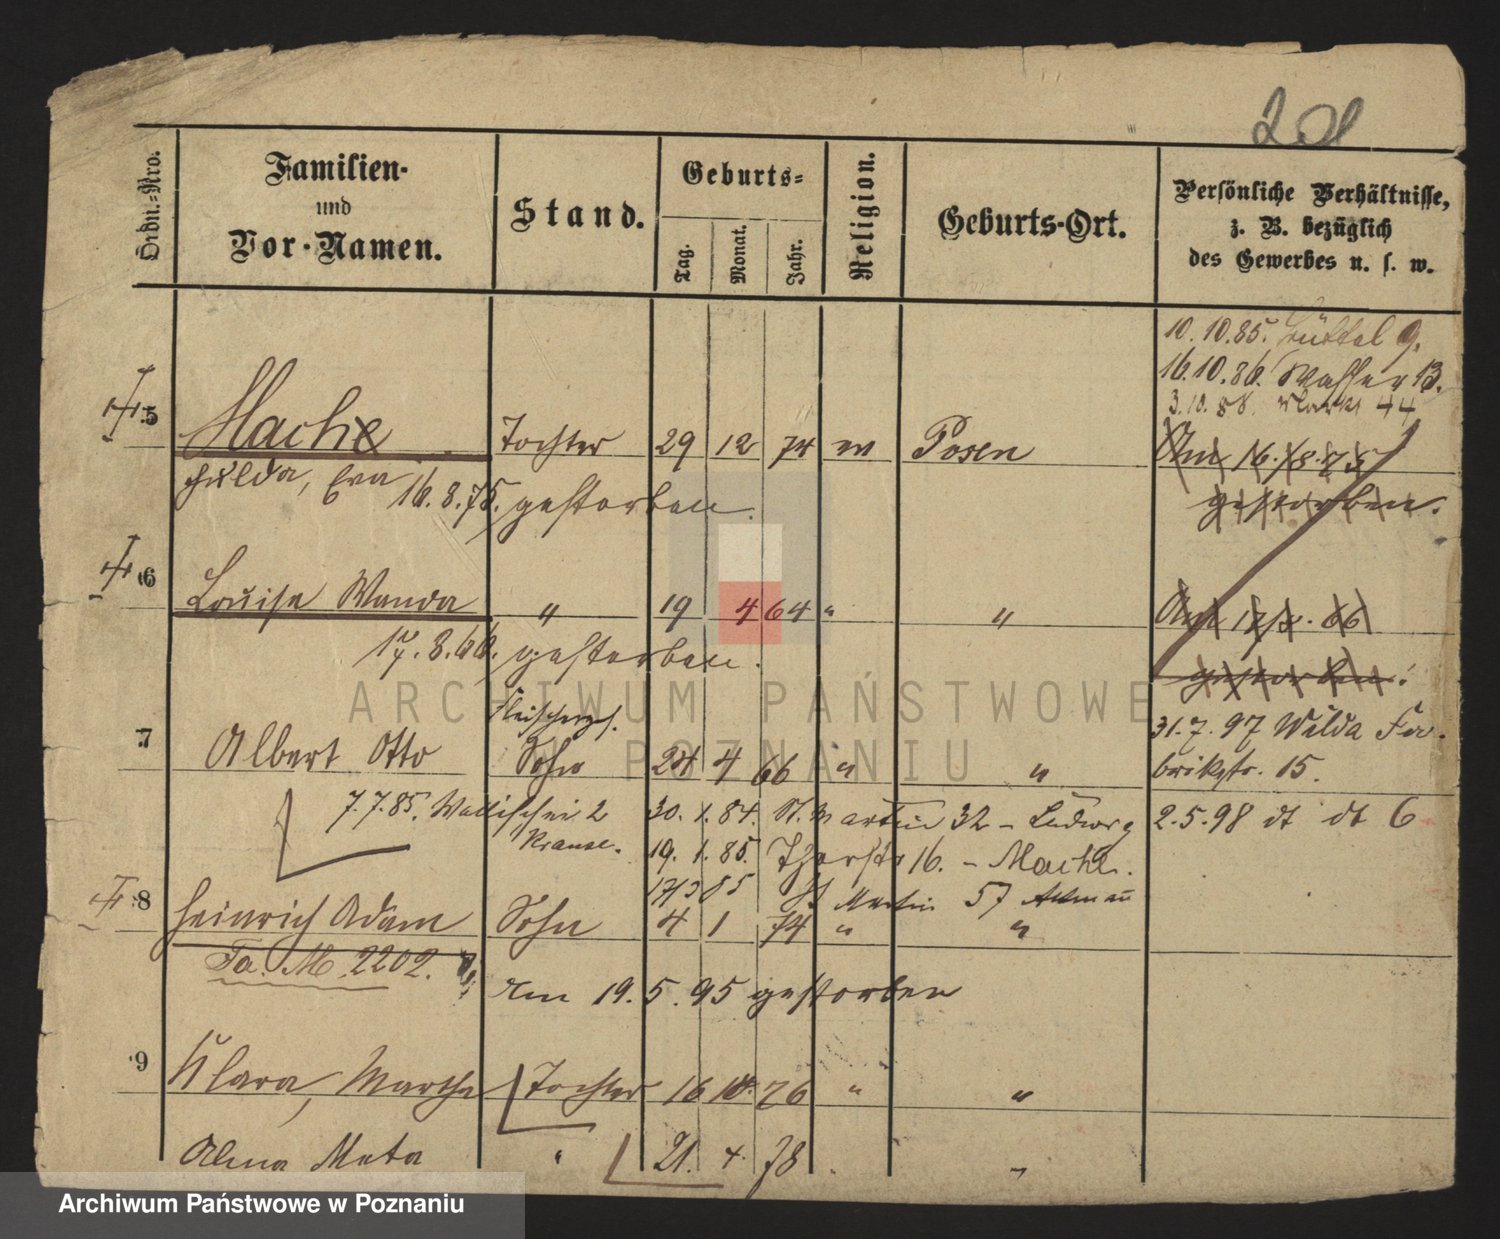 201
Ordn.-Nro.
Familien-
und
Vor-Namen.
Stand.
Geburts-
Tag.
Monat.
Jahr.
Religion.
Geburts-Ort.
Persönliche Verhältnisse,
z. B. bezüglich
des Gewerbes u. s. w.
10.10.85. Büttel 9.
16.10.86. Wasser 13.
3.10.88. Markt 44
5 Mache Tochter 29 12 74 Posen Am 16.8.75
Hulda, Eva 16.8.75. gestorben. gestorben.
6 Louise Wanda " 19 4 64 " " Am 17/8. 66
17.8.66. gestorben. gestorben.
Fleischerges.
31.7.97 Wilda Fa-
7 Albert Otto Sohn 24 4 66 " " brikstr. 15.
7.7.85. Wallischei 2 30.1.84. St. Martin 32 - Ludwig 2.5.98 dt dt 6
Krause. 19.1.85. 16. - Mache.
17/3 85 St Martin 57
8 Heinrich Adam Sohn 4 1 74 " "
Fa. M. 2202.
Am 19.5.95 gestorben
9 Klara, Martha Tochter 16 10. 76 " "
Alma Meta " 21. 4. 78 "
ARCHIWUM PAŃSTWOWE
W POZNANIU
Archiwum Państwowe w Poznaniu